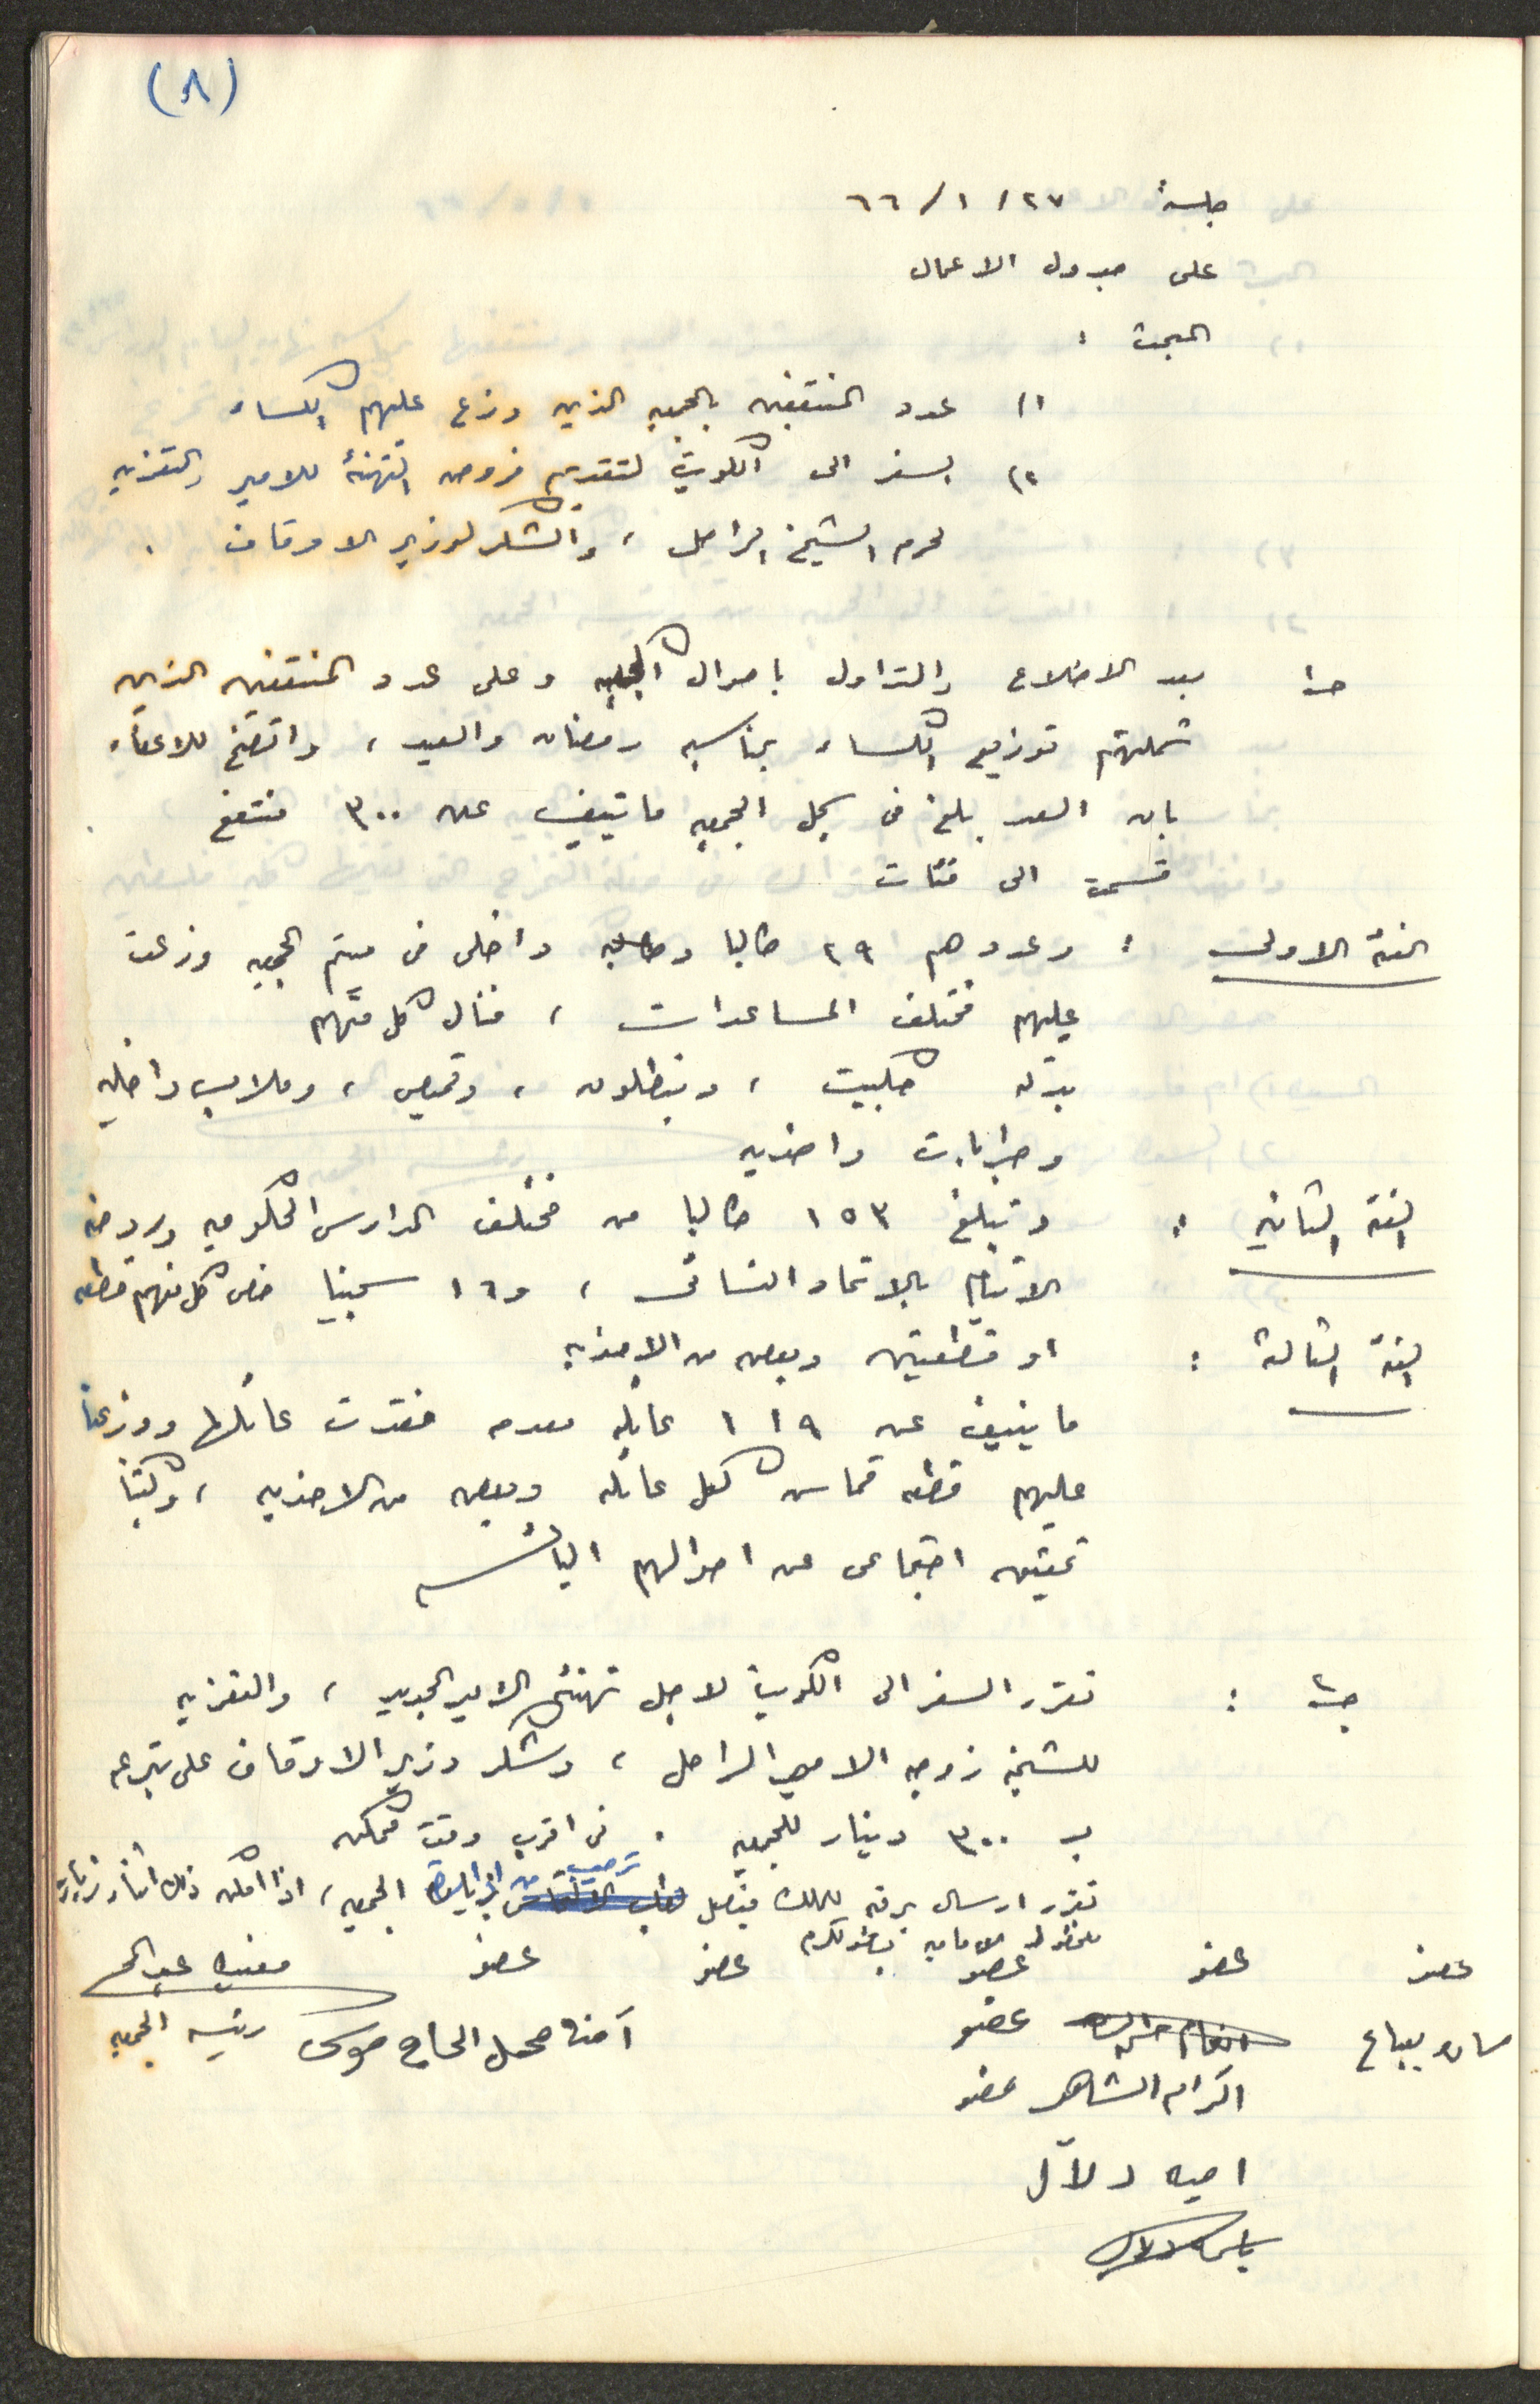 (٨)
جلسة ٢٧/ ١/ ٦٦
على جدول الاعمال
البحث :
١) عدد المنتفعين بالجمعيه الذين وزع عليهم الكساء
٢) السفر الى الكويت لتقديم فروض التهنئة للامير والتعزيه
لحرم الشيخ الراحل ، والشكر لوزير الاوقاف .
بعد الاطلاع والتداول باحوال الجمعيه وعلى عدد المنتفعين الذين
شملتهم توزيع الكساء بمناسبه رمضان والعيد ، واتضح للاعضاء
بان العدد بلغ في سجل الجمعيه ما ينيف عن ٣٠٠ منتفع
قسمت الى فئات
الفئة الاولى : وعددهم ٢٩ طالبا وطالبه داخلي في ميتم الجمعيه وزعت
عليهم مختلف المساعدات ، فنال كل منهم
بدله جكيت ، وبنطلون ، وقميص ، وملابس داخليه
وجرابات واحذيه
الفئة الثانيه : وتبلغ ١٥٣ طالبا من مختلف المدارس الحكوميه وروضة
الايتام بالاتحاد النسائي ، و١٦ سجينا خص كل منهم قطعه
او قطعتين وبعض من الاحذيه
الفئة الثالثة :
ما ينيف عن ١١٩ عائله معدمه فقدت عائلها ووزعنا
عليهم قطعه قماش لكل عائله وبعض من الاحذيه ، وكتبنا
تحقيق اجتماعي عن احوالهم البائسه
: تقرر السفر الى الكويت لاجل تهنئة الامير الجديد ، والتعزيه
للشيخه زوجه الامير الراحل ، وشكر وزير الاوقاف على تبرعه
ب ٣٠٠ دينار للجمعيه . في اقرب وقت ممكن
تقرر ارسال برقه للملك فيصل الجمعيه ، اذا امكن ذلك اثناء زيارته
عضو عضو عضو عضو عضو
رئيسه الجمعيه
آمنة محمد الحاج موسى
عضو
اكرام الشاهر عضو
امينه دلال